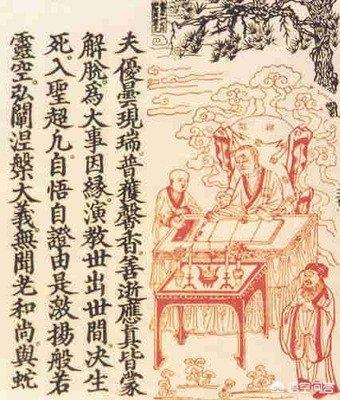 夫優曇現瑞普獲馨香善逝應真皆蒙
解脫爲大事因緣演教世出世間決生
死入聖超凢自悟自證由是激揚般若
靈空弘闡涅槃大義無聞老和尚與蛇
悟空问答